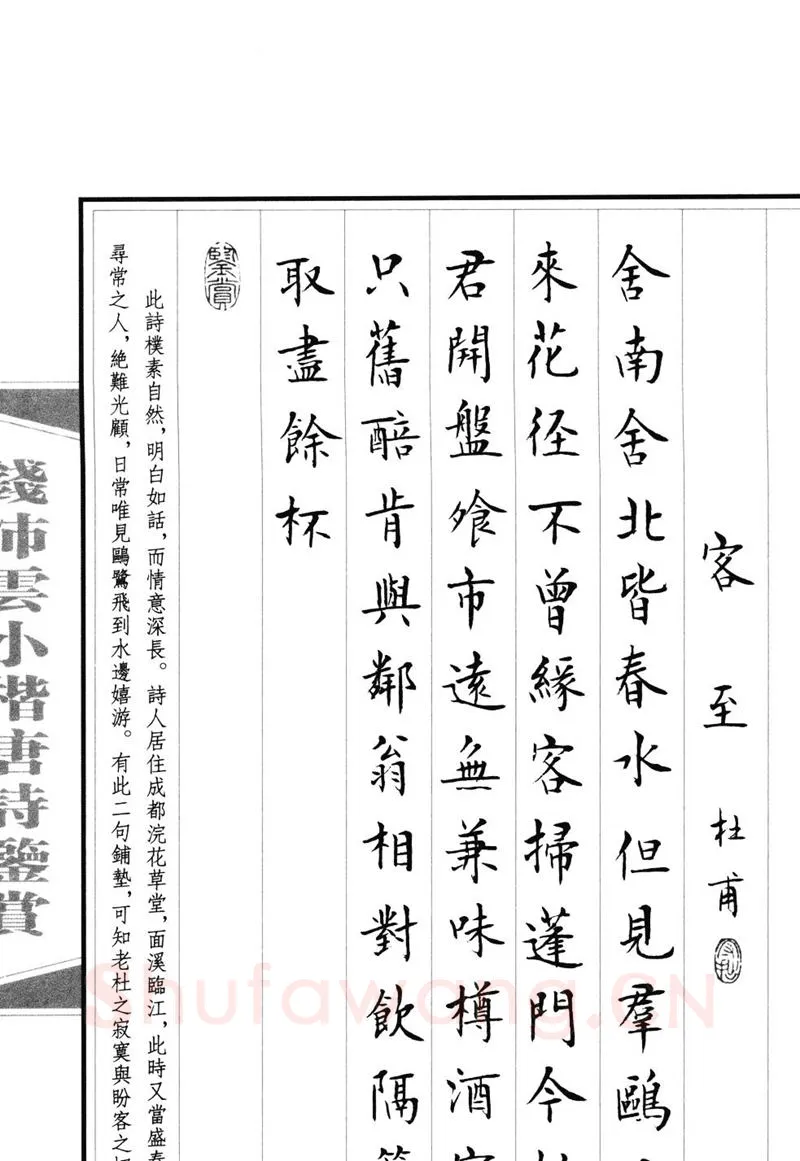 客至 杜甫
舍南舍北皆春水但見羣鷗
來花径不曾緣客掃蓬門今
君開盤飧市遠無兼味樽酒
只舊醅肯與鄰翁相對飲隔
取盡餘杯
鑒賞
此詩樸素自然，明白如話，而情意深長。詩人居住成都浣花草堂，面溪臨江，此時又當盛春
尋常之人，絶難光顧，日常唯見鷗鷺飛到水邊嬉游。有此二句鋪墊，可知老杜之寂寞與盼客之
錢沛雲小楷唐詩鑒賞
Shufawang.CN